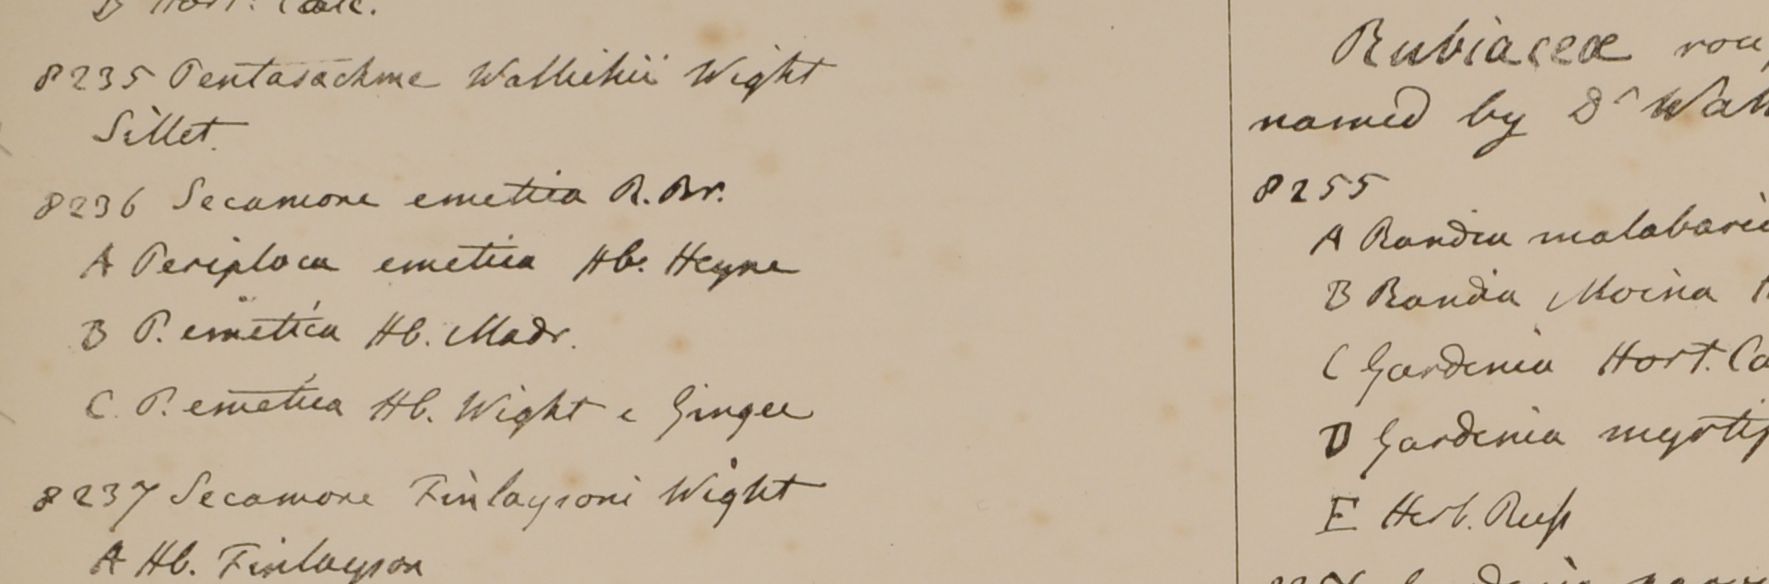 D Hort. Calc.
8235 Pentasachme Wallichii Wight
Sillet.
8236 Secamone emetica R. Br.
A Periploca emetica Hb. Heyne
B P. emetica Hb. Madr.
C. P. emetica Hb. Wight e Gingee
8237 Secamone Finlaysoni Wight
A Hb. Finlayson
Rubiaceæ
named by Dr Wall
8255
A Randia malabaric
B Randia Moina
C Gardenia Hort. Ca
D Gardenia myrtif
E Herb. Russ